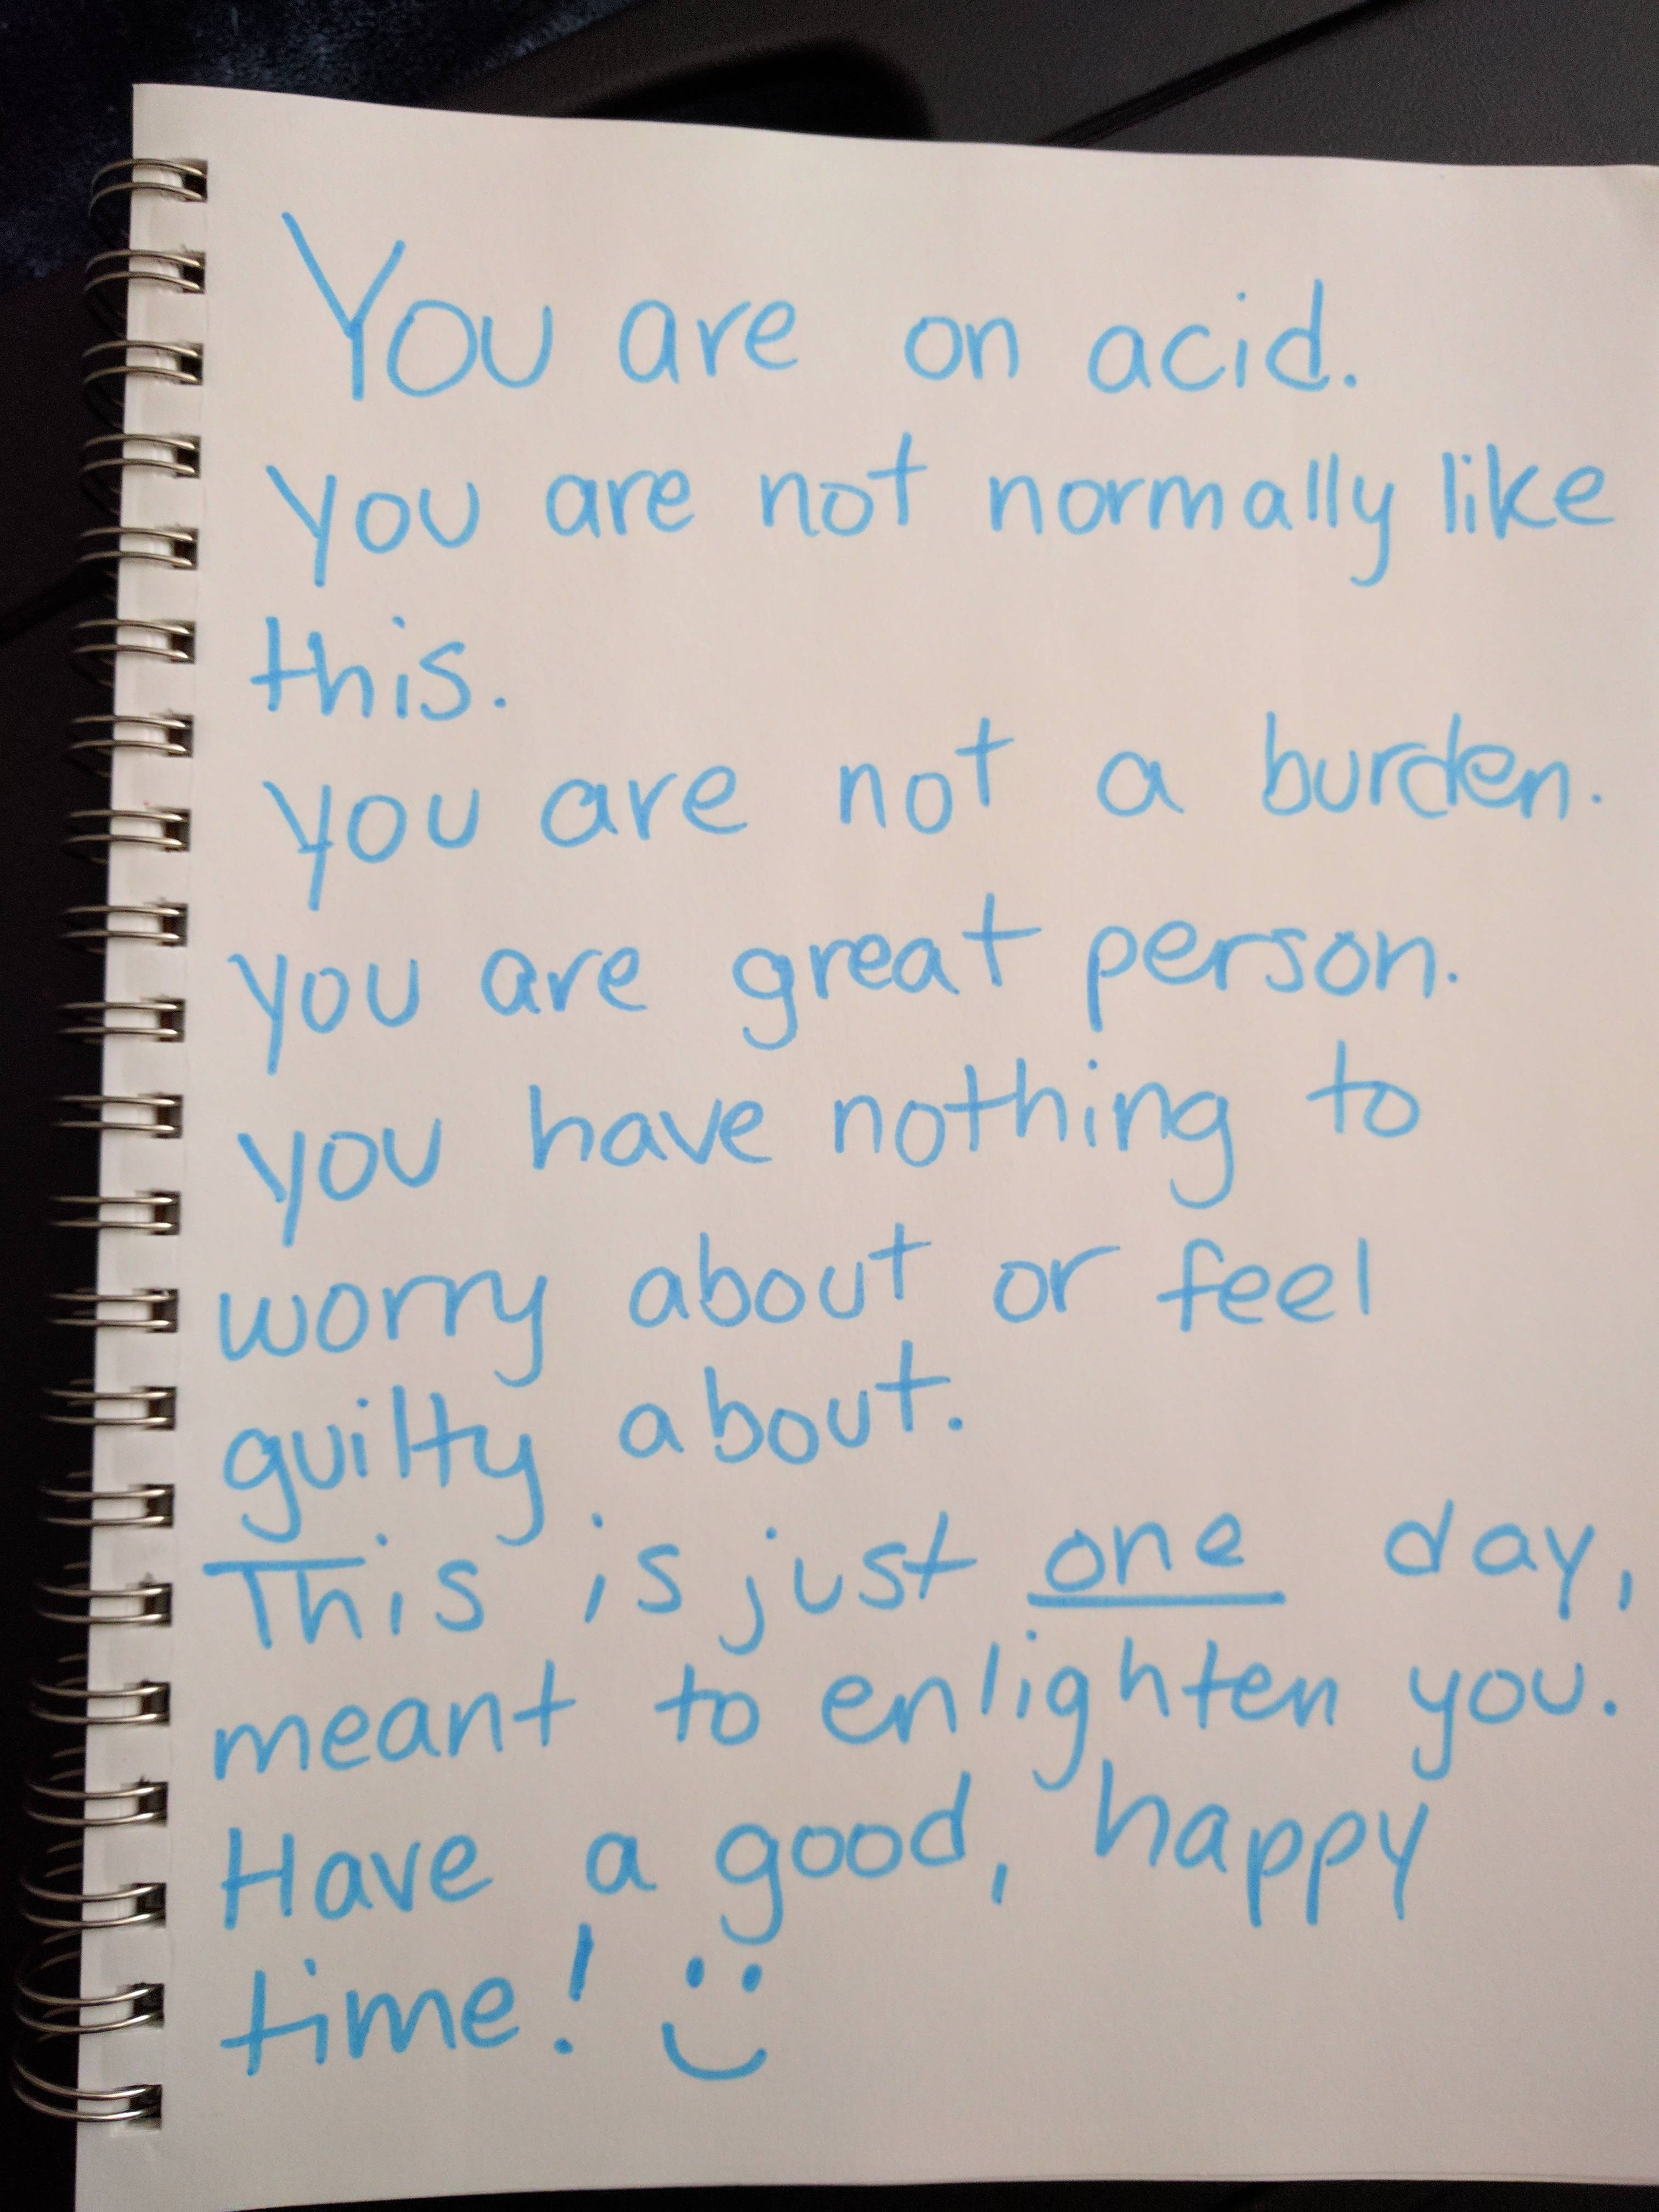 You are on acid.
You are not normally like
this.
You are not a burden.
You are great person.
You have nothing to
worry about or feel
guilty about.
This is just one day,
meant to enlighten you.
Have a good, happy
time! :)